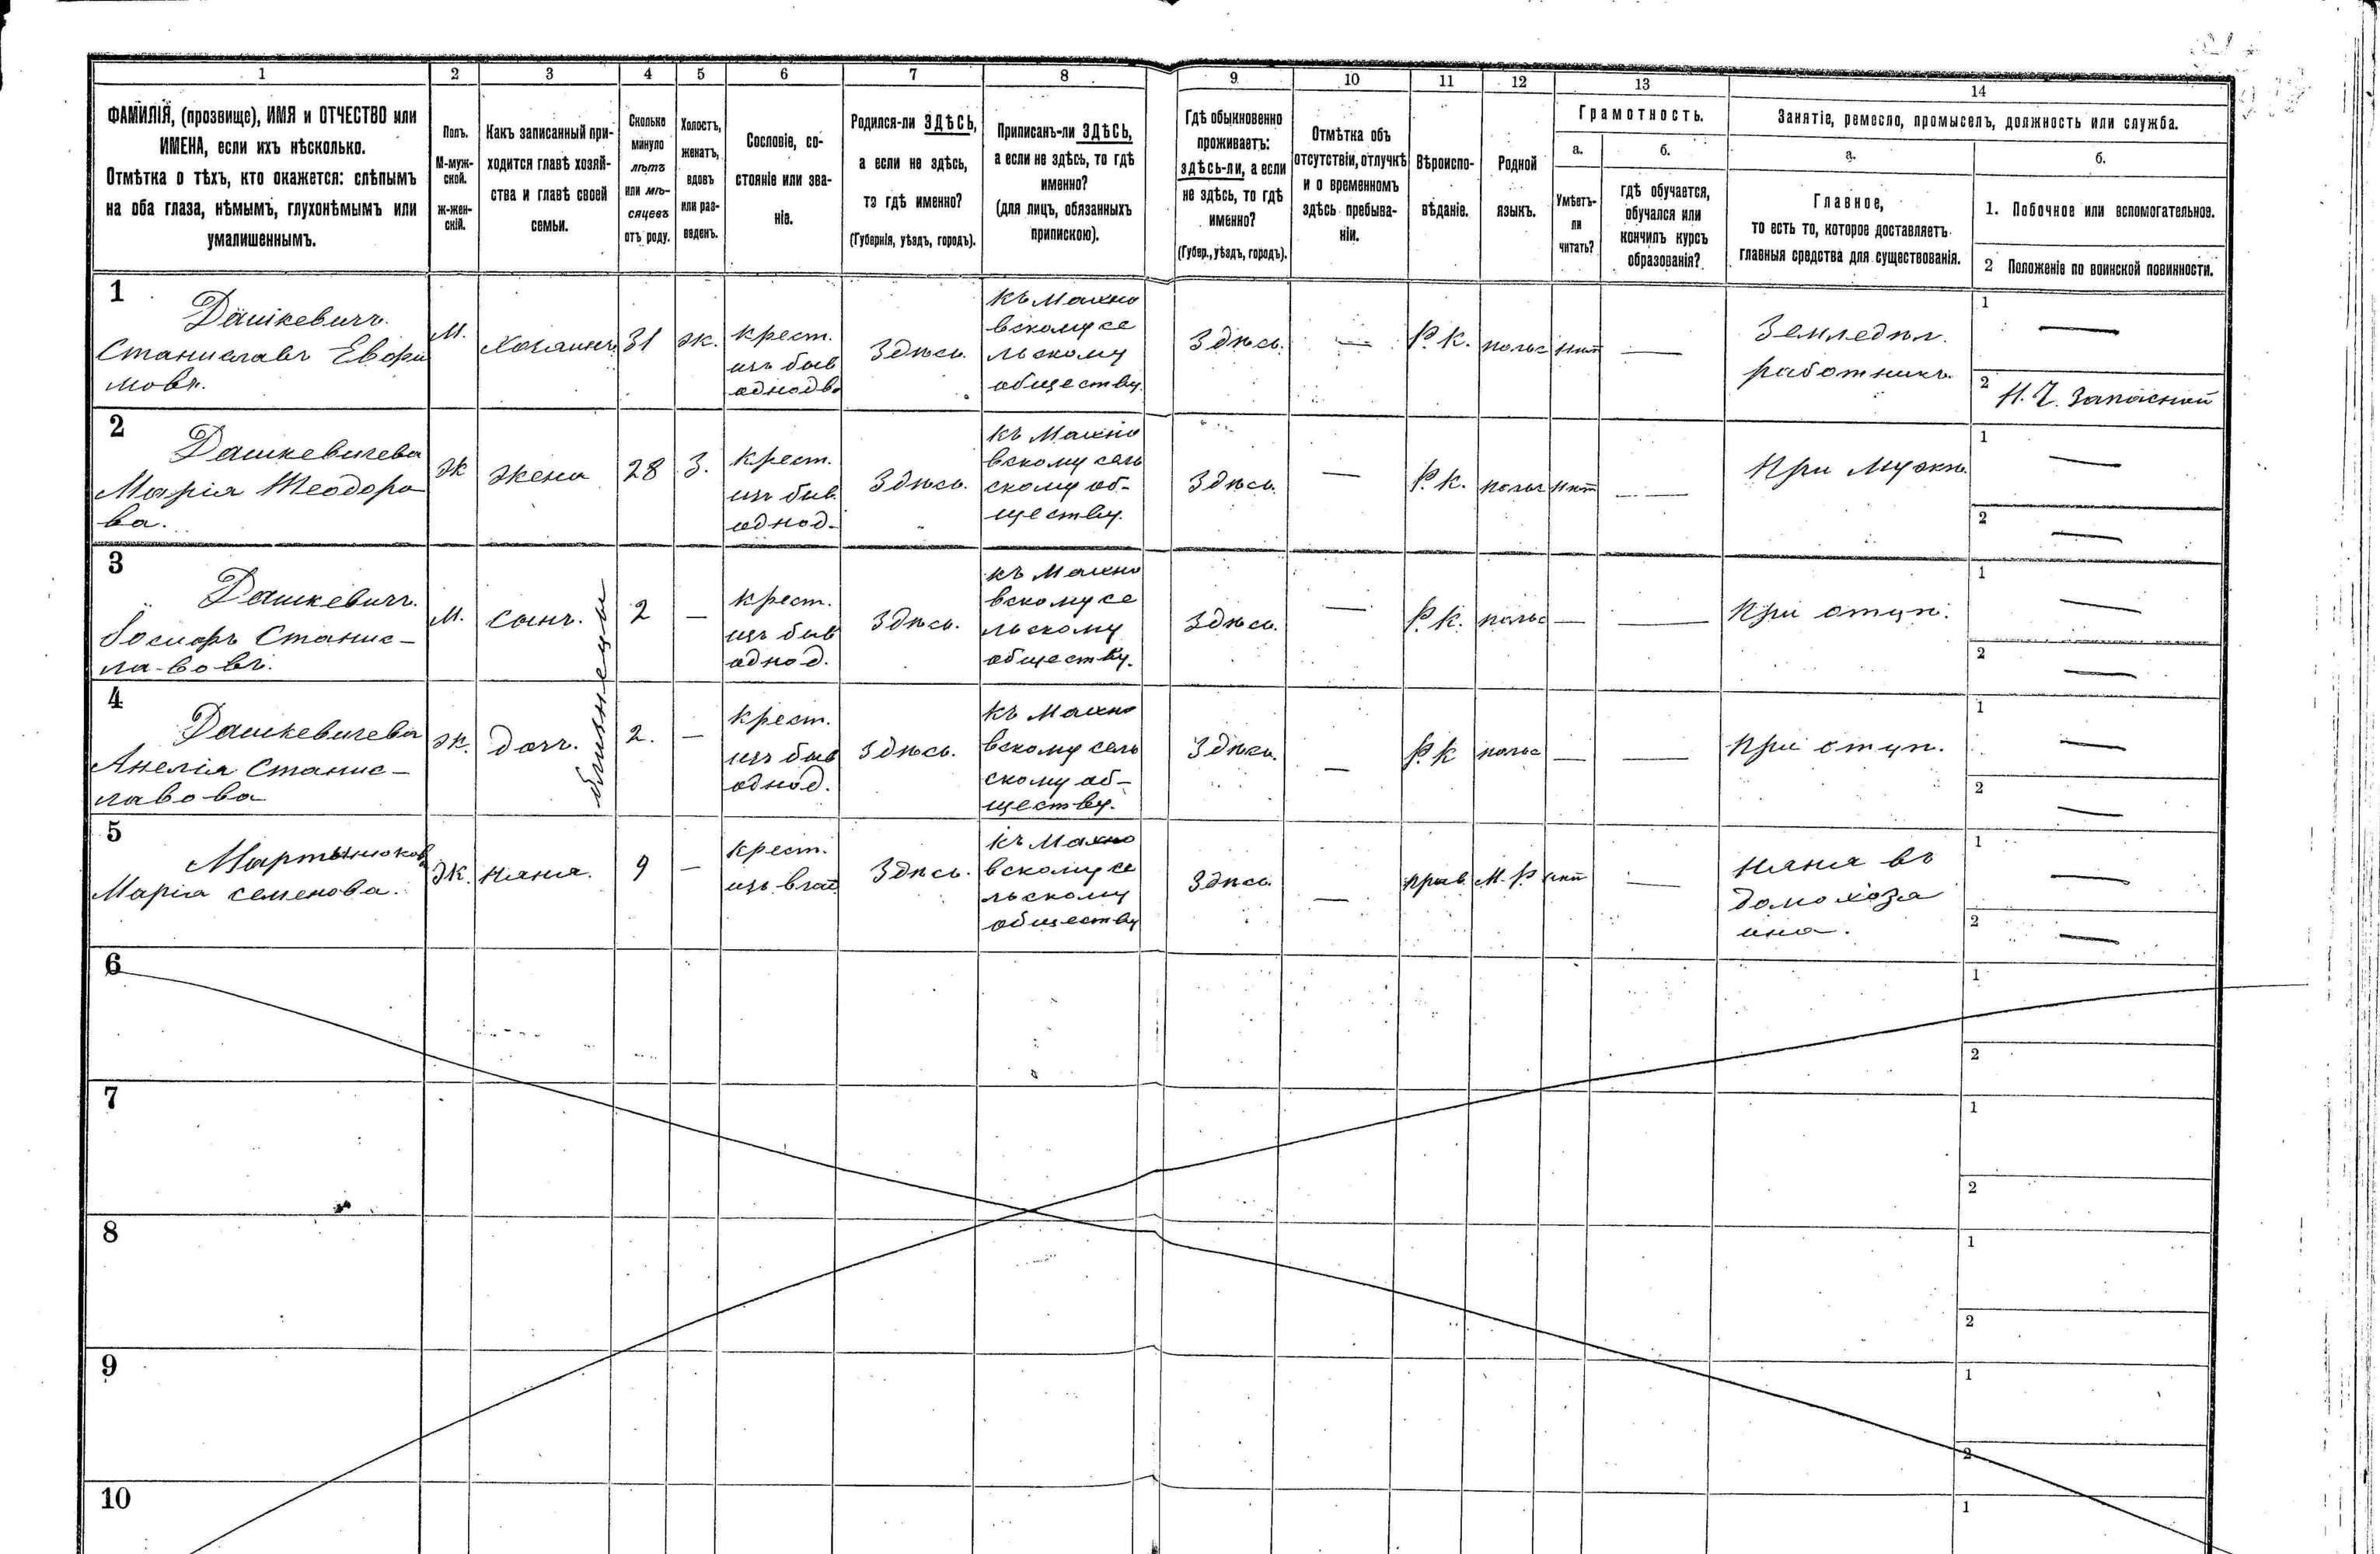 1 2 3 4 5 6 7 8 9 10 11 12 13 14
ФАМИЛІЯ, (прозвище), ИМЯ и ОТЧЕСТВО или
ИМЕНА, если ихъ нѣсколько.
Отмѣтка о тѣхъ, кто окажется: слѣпымъ
на оба глаза, нѣмымъ, глухонѣмымъ или
умалишеннымъ.
Полъ.
М-муж-
ской.
Ж-жен-
скій.
Какъ записанный при-
ходится главѣ хозяй-
ства и главѣ своей
семьи.
Сколько
минуло
лѣтъ
или мѣ-
сяцевъ
отъ роду.
Холостъ,
женатъ,
вдовъ
или раз-
веденъ.
Сословіе, со-
стояніе или зва-
ніе.
Родился-ли ЗДѢСЬ,
а если не здѣсь,
то гдѣ именно?
(Губернія, уѣздъ, городъ).
Приписанъ-ли ЗДѢСЬ,
а если не здѣсь, то гдѣ
именно?
(для лицъ, обязанныхъ
припискою).
Гдѣ обыкновенно
проживаетъ:
здѣсь-ли, а если
не здѣсь, то гдѣ
именно?
(Губер., уѣздъ, городъ).
Отмѣтка объ
отсутствіи, отлучкѣ
и о временномъ
здѣсь пребыва-
ніи.
Вѣроиспо-
вѣданіе.
Родной
языкъ.
Грамотность.
а.
Умѣетъ-
ли
читать?
б.
гдѣ обучается,
обучался или
кончилъ курсъ
образованія?
Занятіе, ремесло, промыселъ, должность или служба.
а.
Главное,
то есть то, которое доставляетъ
главныя средства для существованія.
б.
1. Побочное или вспомогательное.
2 Положеніе по воинской повинности.
1
Дашкевичъ
Станиславъ
мовъ.
М.
хозяинъ
31
ж.
крест.
изъ быв
однодв
Здѣсь.
къ Махно
вскому се
льскому
обществу
Здѣсь.
—
Р. К.
польс
нѣт
—
Земледѣл.
работникъ
1 —
2 Н. Ч. Запасной
2
Дашкевичева
Марія Теодоро
ва.
Ж
жена
28
З.
крест.
изъ быв
однод.
Здѣсь.
къ Махно
вскому сель
скому об-
ществу.
Здѣсь.
—
Р. К.
польс
нѣт
—
при мужѣ
1 —
2 —
3
Дашкевичъ.
Іосифъ Станис-
ла-вовъ.
М.
сынъ.
близнецы
2
—
крест.
изъ быв
однод.
Здѣсь.
къ Махно
вскому се
льскому
обществу.
Здѣсь.
—
Р. К.
польс
—
—
при отцѣ.
1 —
2 —
4
Дашкевичева
Анелія Станис-
лавова
Ж.
дочь.
2.
—
крест.
изъ быв
однод.
Здѣсь.
къ Махно
вскому сель
скому об-
ществу.
Здѣсь.
—
Р. К
польс
—
—
при отцѣ.
1 —
2 —
5
Мартынюкова
Марія семенова.
Ж.
няня.
9
—
крест.
Здѣсь.
къ Махно
вскому се
льскому
обществу
Здѣсь.
—
прав.
М. Р.
нѣт
—
няня въ
домохозя
ина.
1 —
2 —
6
1
2
7
1
2
8
1
2
9
1
2
10
1